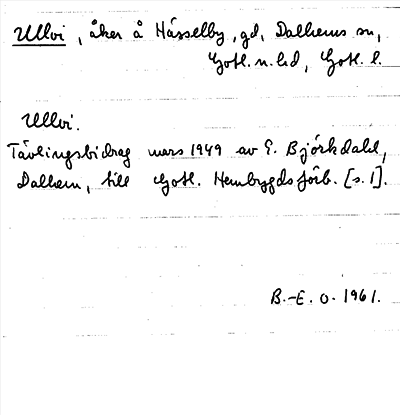 Ullvi, åker å Hässelby, gd, Dalhems sn,
Gotl. n. hd, Gotl. l.
Ullvi.
Tävlingsbidrag mars 1949 av E. Björkdahl,
Dalhem, till Gotl. Hembygdsförb. [s. 1].
B.-E. O. 1961.